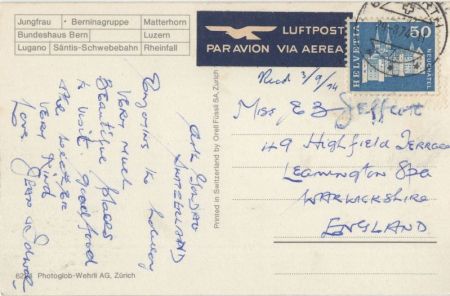 Jungfrau • Berninagruppe Matterhorn
Bundeshaus Bern Luzern
Lugano Säntis-Schwebebahn Rheinfall
LUFTPOST
PAR AVION VIA AEREA
HELVETIA
50
NEUCHÂTEL
Recd 3/9/74
SWITZERLAND
Enjoying the holiday
Very much
Beautiful places
to visit. Good food
the weather
very kind
Love
Printed in Switzerland by Orell Füssli SA, Zürich
Photoglob-Wehrli AG, Zürich
Miss E
49 Highfield Terrace
Leamington Spa
WARWICKSHIRE
ENGLAND